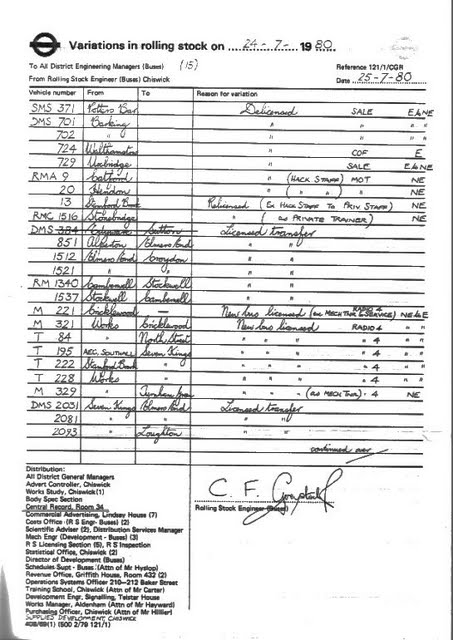 Variations in rolling stock on 24-7- 1980
To All District Engineering Managers (Buses) (15)
Reference 121/1/CGR
From Rolling Stock Engineer (Buses) Chiswick
Date 25-7-80
Vehicle number From To Reason for variation
SMS 371 Potters Bar Delicensed SALE E&NE
DMS 701 Barking " " " "
702 " " " " "
724 Walthamstow " COF E
729 Uxbridge " SALE E&NE
RMA 9 Catford " (HACK STAFF) MOT NE
20 Hendon " ( " " ) " NE
13 Stamford Brook Relicensed (Ex HACK STAFF TO PRIV. STAFF) NE
RMC 1516 Stonebridge " (as PRIVATE TRAINER) NE
DMS 384 Sutton Licensed transfer
851 Alperton Elmers End " "
1512 Elmers End Croydon " "
1521 " " " "
RM 1340 Camberwell Stockwell " "
1537 Stockwell Camberwell " "
M 221 Cricklewood — New bus licensed (ex MECH TNR to SERVICE) RADIO 4 NE&E
M 321 Works Cricklewood New bus licensed RADIO 4 " "
T 84 " North Street " " " " 4 " "
T 195 AEC, SOUTHALL Seven Kings " " " " 4 " "
T 222 Stamford Brook " " " " " 4 " "
T 228 Works " " " " " 4 " "
M 329 " Turnham Green " " " (as MECH TNR) " 4 NE
DMS 2031 Seven Kings Elmers End Licensed transfer
2081 " " " "
2093 " Loughton " "
continued over
Distribution:
All District General Managers
Advert Controller, Chiswick
Works Study, Chiswick(1)
Body Spec Section
Central Record, Room 34
Commercial Advertising, Lindsay House (7)
Costs Office (R S Engr- Buses) (2)
Scientific Adviser (2), Distribution Services Manager
Mech Engr (Development - Buses) (3)
R S Licensing Section (5), R S Inspection
Statistical Office, Chiswick (2)
Director of Development (Buses)
Schedules Supt - Buses (Attn of Mr Hyslop)
Revenue Office, Griffith House, Room 432 (2)
Operations Systems Officer 210–212 Baker Street
Training School, Chiswick (Attn of Mr Carter)
Development Engr, Signalling, Telstar House
Works Manager, Aldenham (Attn of Mr Hayward)
Purchasing Officer, Chiswick (Attn of Mr Hillier)
SUPPLIES DEVELOPMENT, CHISWICK
408/69(1) (500 2/79 121/1)
C. F.
Rolling Stock Engineer (Buses)